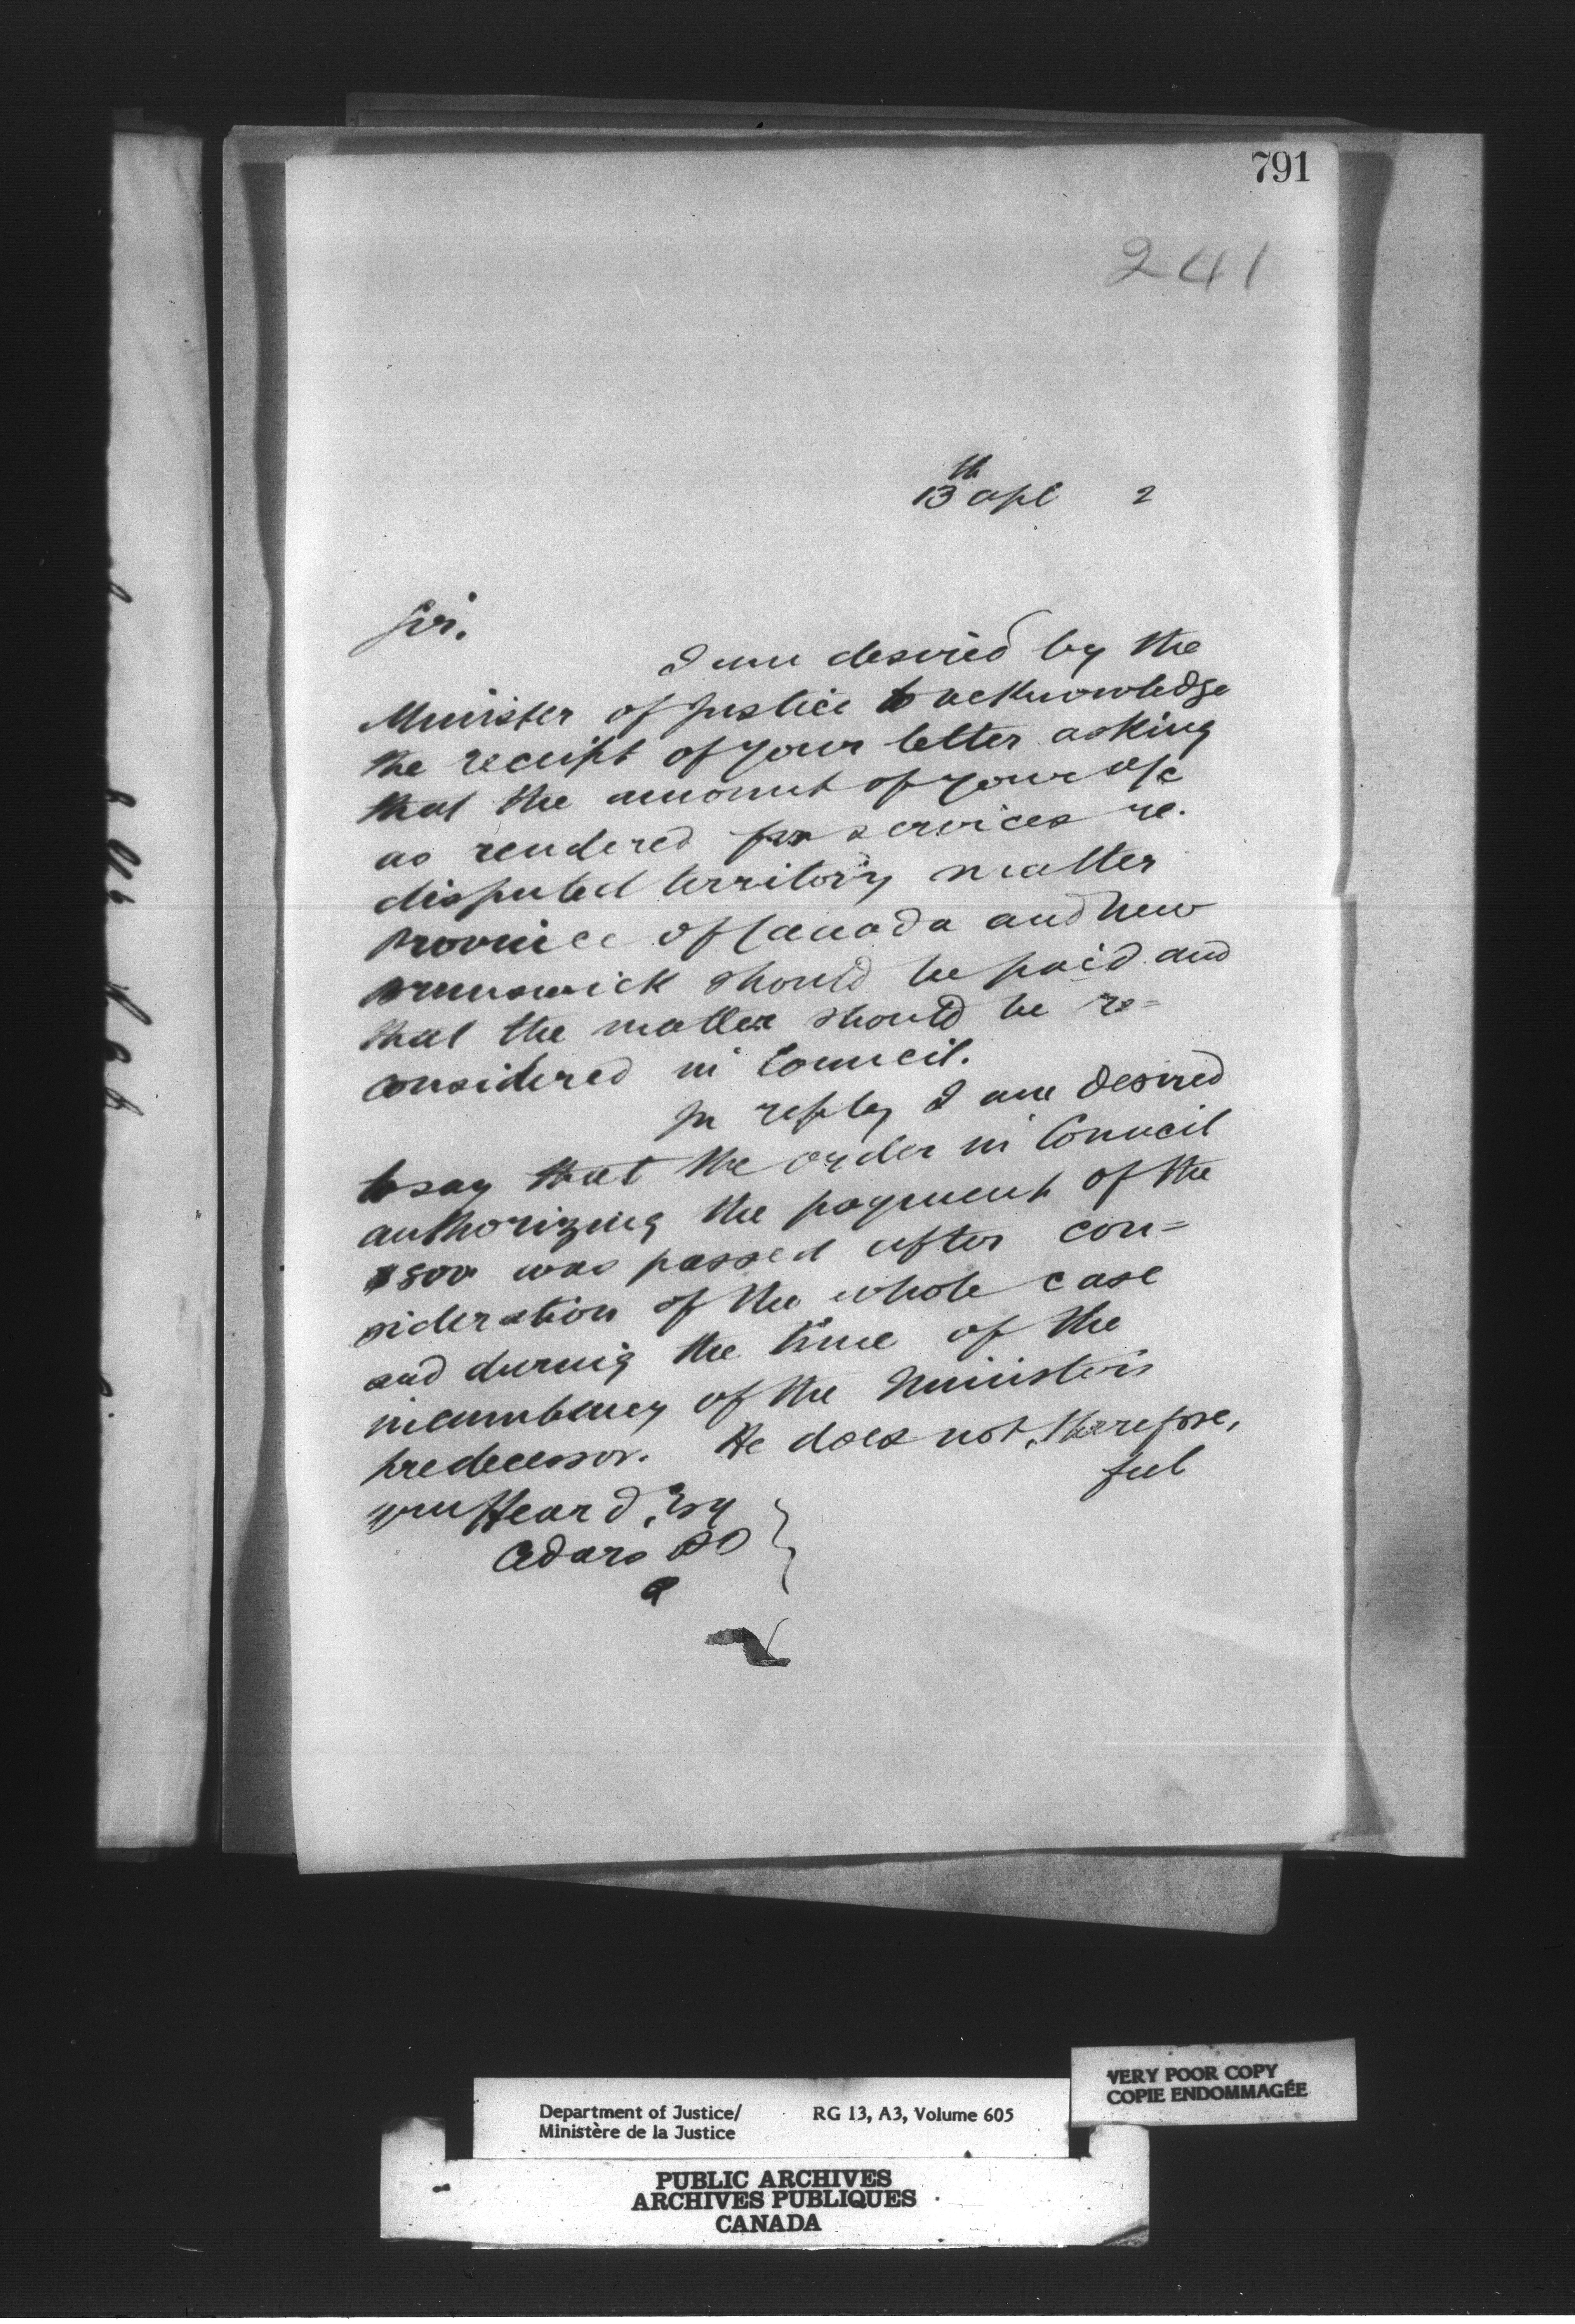 791
241
13th apl 2
Sir.
I am desired by the
Minister of Justice to acknowledge
the receipt of your letter asking
that the amount of your a/c
as rendered for services re.
disputed territory matter
Province of Canada and New
Brunswick should be paid and
that the matter should be re=
considered in Council.
In reply I am desired
to say that the order in Council
authorizing the payment of the
$800 was passed after con=
sideration of the whole case
and during the time of the
incumbency of the Ministers
predecessor. He does not, therefore,
feel
Wm Heard, Esq
Cedars PO
Q
VERY POOR COPY
COPIE ENDOMMAGÉE
Department of Justice/ RG 13, A3, Volume 605
Ministère de la Justice
PUBLIC ARCHIVES
ARCHIVES PUBLIQUES
CANADA